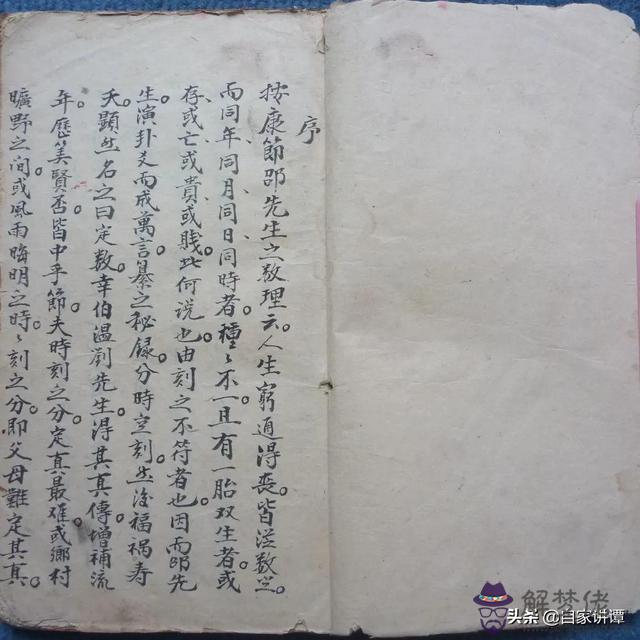 序
按康節邵先生之数理云。人生窮通得喪皆從数出。
而同年、同月、同日、同時者。種〻不一且有一胎双生者。或
存、或亡、或貴、或賤。此何说也。由刻之不符者也。因而邵先
生演卦爻而成萬言。纂之秘録。分時定刻。然後福祸寿
夭顯然。名之曰定数。幸伯温刘先生得其真傳。增補流
年。歷筭賢否。皆中乎節。夫時刻之分。定真最难。或鄉村
曠野之间。或風雨晦明之時。〻刻之分。即父母難定其真。
解梦佬
头条 @百家讲谭